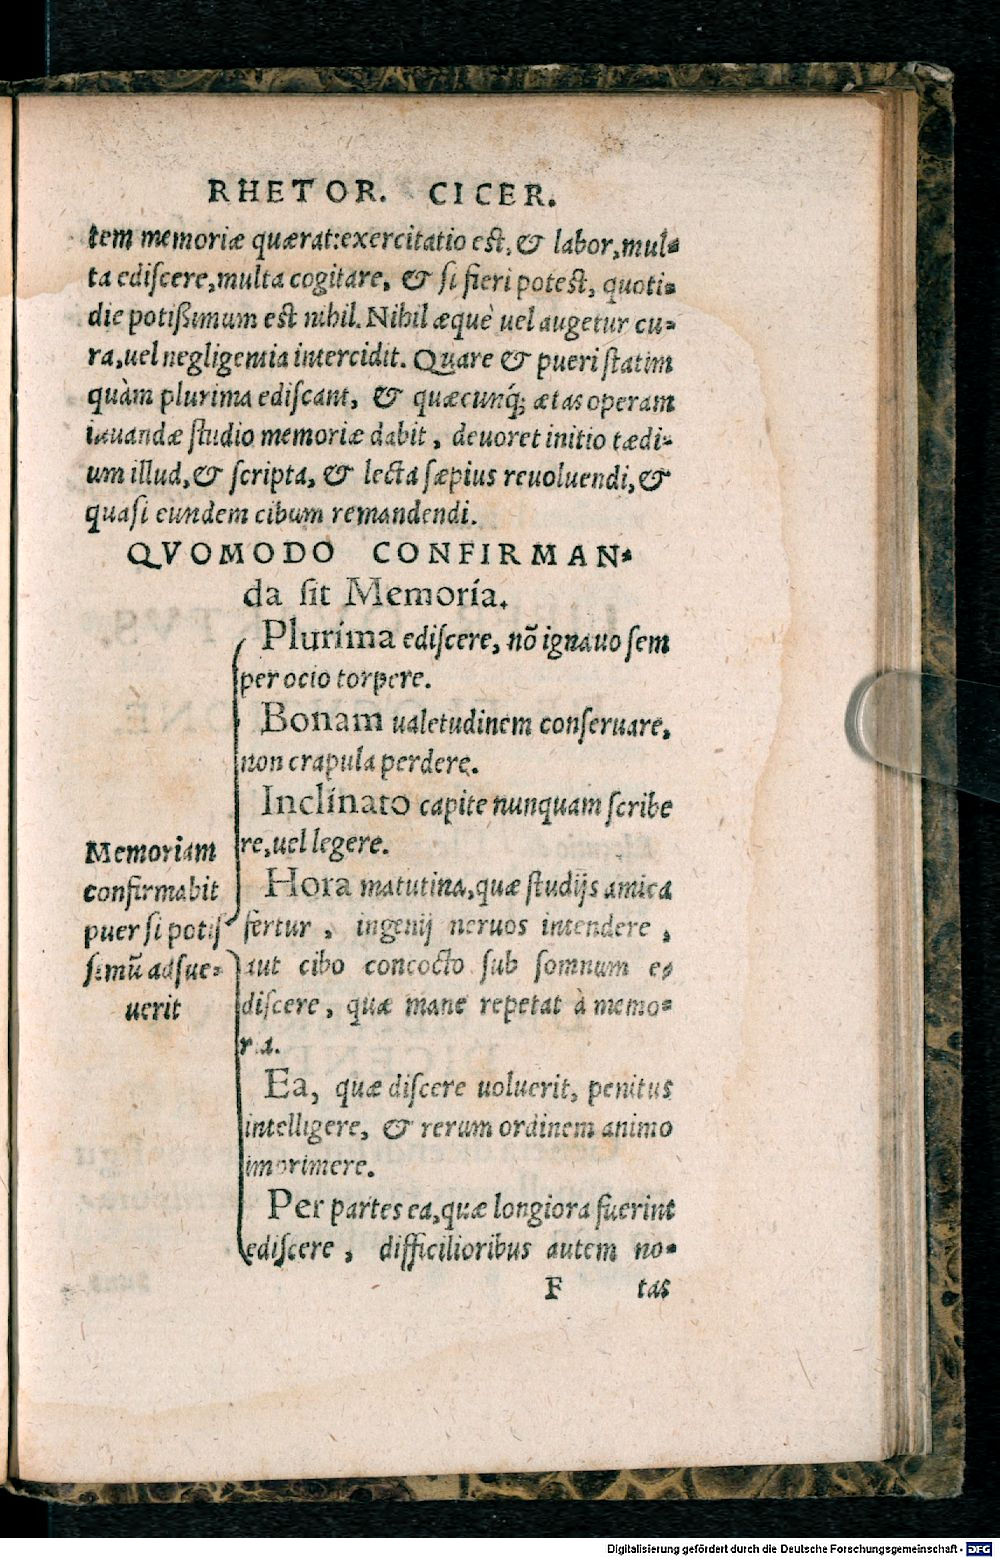 RHETOR. CICER.
tem memoriæ quærat: exercitatio est, & labor, mul-
ta ediſcere, multa cogitare, & ſi fieri potest, quoti-
die potiſsimum est nihil. Nihil æquè uel augetur cu-
ra, uel negligentia intercidit. Quare & pueri ſtatim
quàm plurima ediſcant, & quæcunq́; ætas operam
iuuandæ ſtudio memoriæ dabit, deuoret initio tædi-
um illud, & ſcripta, & lecta ſæpius reuoluendi, &
quaſi eundem cibum remandendi.
QVOMODO CONFIRMAN-
da ſit Memoria.
Memoriam
confirmabit
puer ſi potiſ
ſimũ adſue-
uerit
Plurima ediſcere, nõ ignauo ſem
per ocio torpere.
Bonam ualetudinem conſeruare,
non crapula perdere.
Inclinato capite nunquam ſcribe
re, uel legere.
Hora matutina, quæ ſtudijs amica
fertur, ingenij neruos intendere,
aut cibo concocto ſub ſomnum e-
diſcere, quæ mane repetat à memo-
ria.
Ea, quæ diſcere uoluerit, penitus
intelligere, & rerum ordinem animo
imprimere.
Per partes ea, quæ longiora fuerint
ediſcere, difficilioribus autem no-
F tas
Digitalisierung gefördert durch die Deutsche Forschungsgemeinschaft - DFG